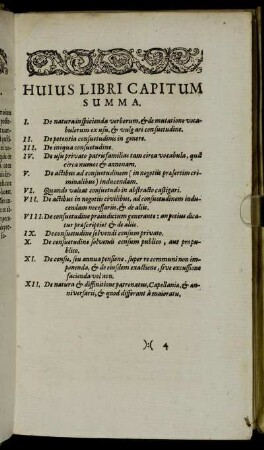 HUIUS LIBRI CAPITUM
SUMMA.
I. De natura inspicienda verborum, & de mutatione voca-
bulorum ex usu, & vulgari consuetudine.
II. De potentia consuetudinis in genere.
III. De iniqua consuetudine.
IV. De usu privato patrisfamilias tam circa vocabula, quã
circa numos & annonam.
V. De actibus ad consuetudinem in negotiis præsertim cri-
minalibus inducendam.
VI. Quando valeat consuetudo in abstracto castigari.
VII. De actibus in negotiis civilibus, ad consuetudinem indu-
cendam necessariis, & de aliis.
VIII. De consuetudine præiudicium generante: an potius dica-
tur præscriptio? & de aliis.
IX. De consuetudine solvendi censum privato.
X. De consuetudine solvendi censum publico, aut pro-
publico.
XI. De censu, seu annua pensione, super re communi non im-
ponenda, & de eiusdem exactione, sive excussione
facienda vel non.
XII. De natura & diffinitione patronatus, Capellaniæ, & an-
niversarii, & quod differant à maioratu.
):( 4